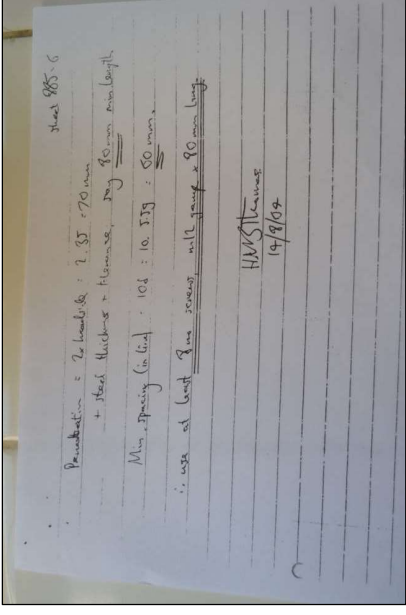 sheet 985-6
Penetration = 2x headside = 2.35 = 70 mm
+ steel thickness + tolerance, say 80mm min length
Min. spacing (in line) = 10d = 10. 5.59 = 60 mm.
∴ use at least 8 no screws, n°12 gauge x 80 mm long.
14/8/04